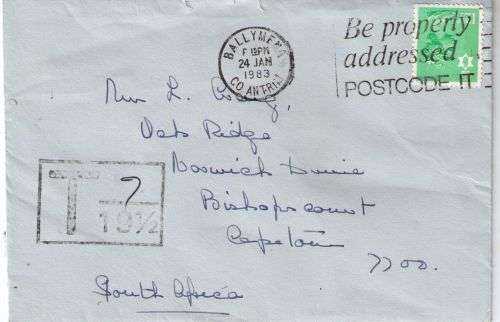 BALLYMENA
6 15PM
24 JAN
1983
CO. ANTRIM
Be properly
addressed
POSTCODE IT
Mrs L.
Oaks Ridge
Noswich Drive
Bishopscourt
Capetown
7700.
South Africa
T 7
19½